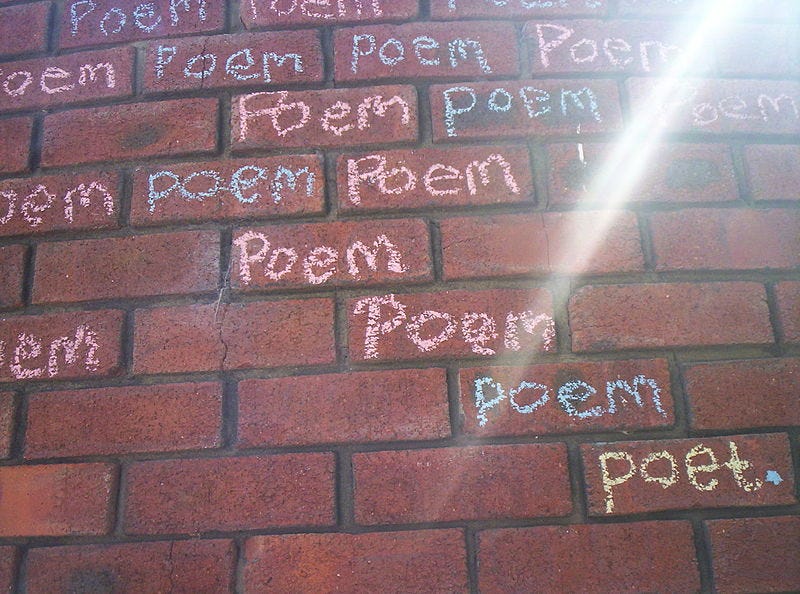 poem Poem
oem Poem poem Poem
Poem poem Poem
oem poem Poem
Poem
em Poem
poem
poet.